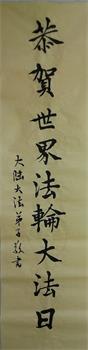 恭賀世界法輪大法日
大陆大法弟子敬书